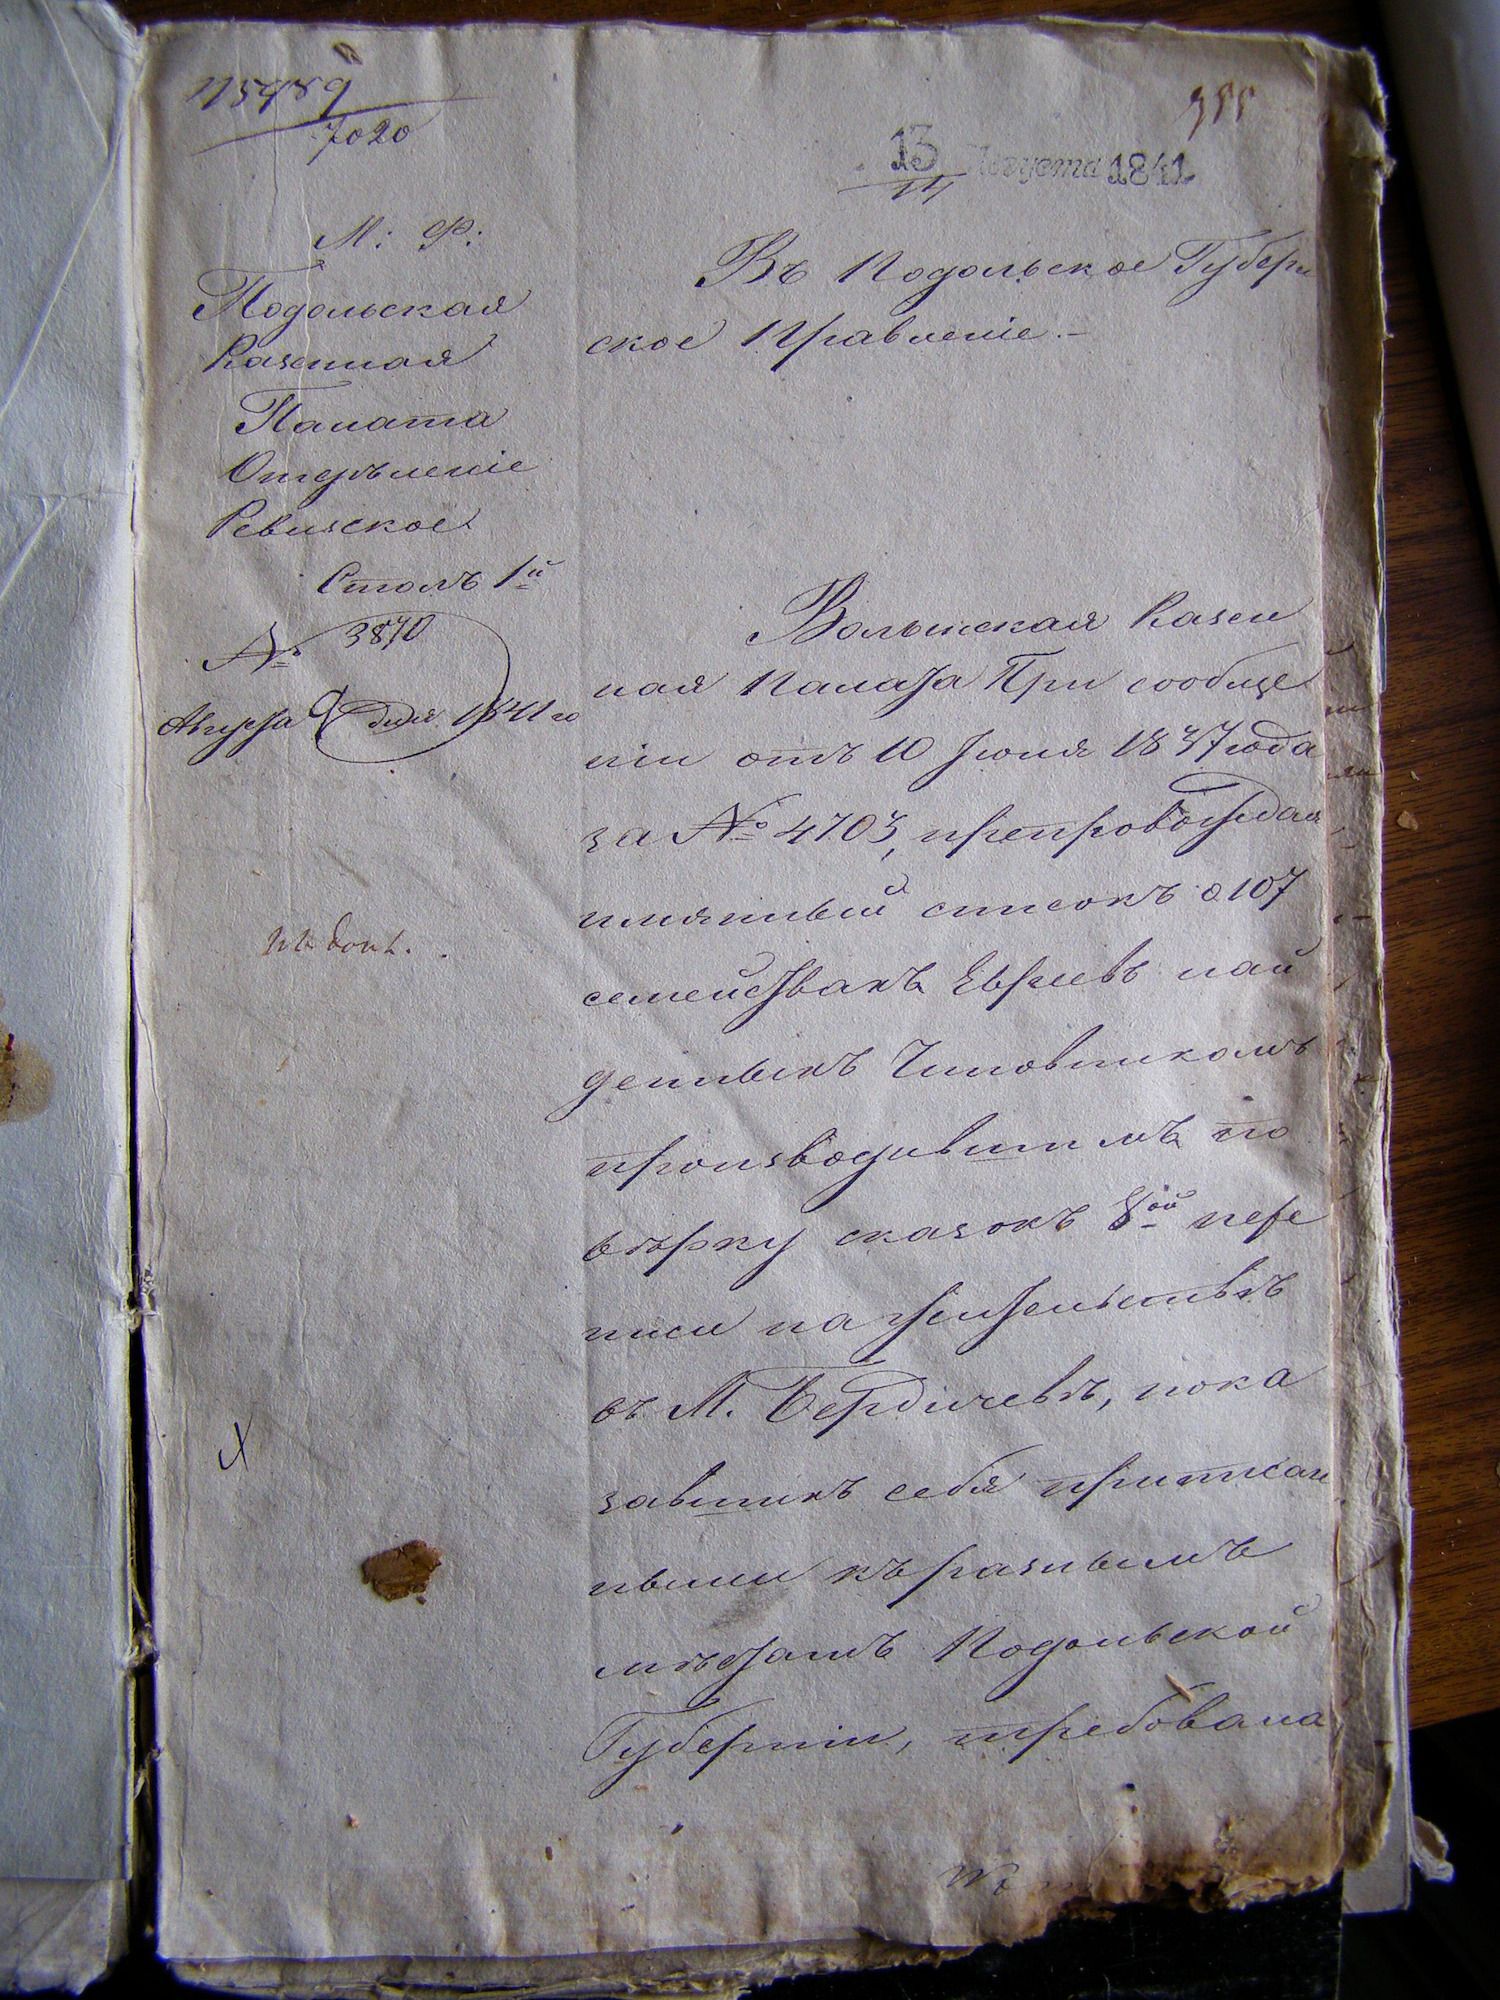 115489
7020
355
13 Августа 1841
14
М: Ф:
Подольская
Казенная
Палата
Отдѣленіе
Ревизское
Столъ 1й
№ 3870
Августа 9 дня 1841 го
Въ Подольское Губерн
ское Правленіе.-
Волынская Казен
ная Палата При сообще
ніи отъ 10 Іюня 1837 года
за № 4703, препровождая
имянный списокъ о 107
семействахъ Евреевъ най
денныхъ Чиновникомъ
производившимъ по
вѣрку сказокъ 8ой пере
писи на жительствѣ
въ М. Бердичевѣ, пока
завшихъ себя приписан
ными къ разнымъ
мѣстамъ Подольской
Губерніи, требовала